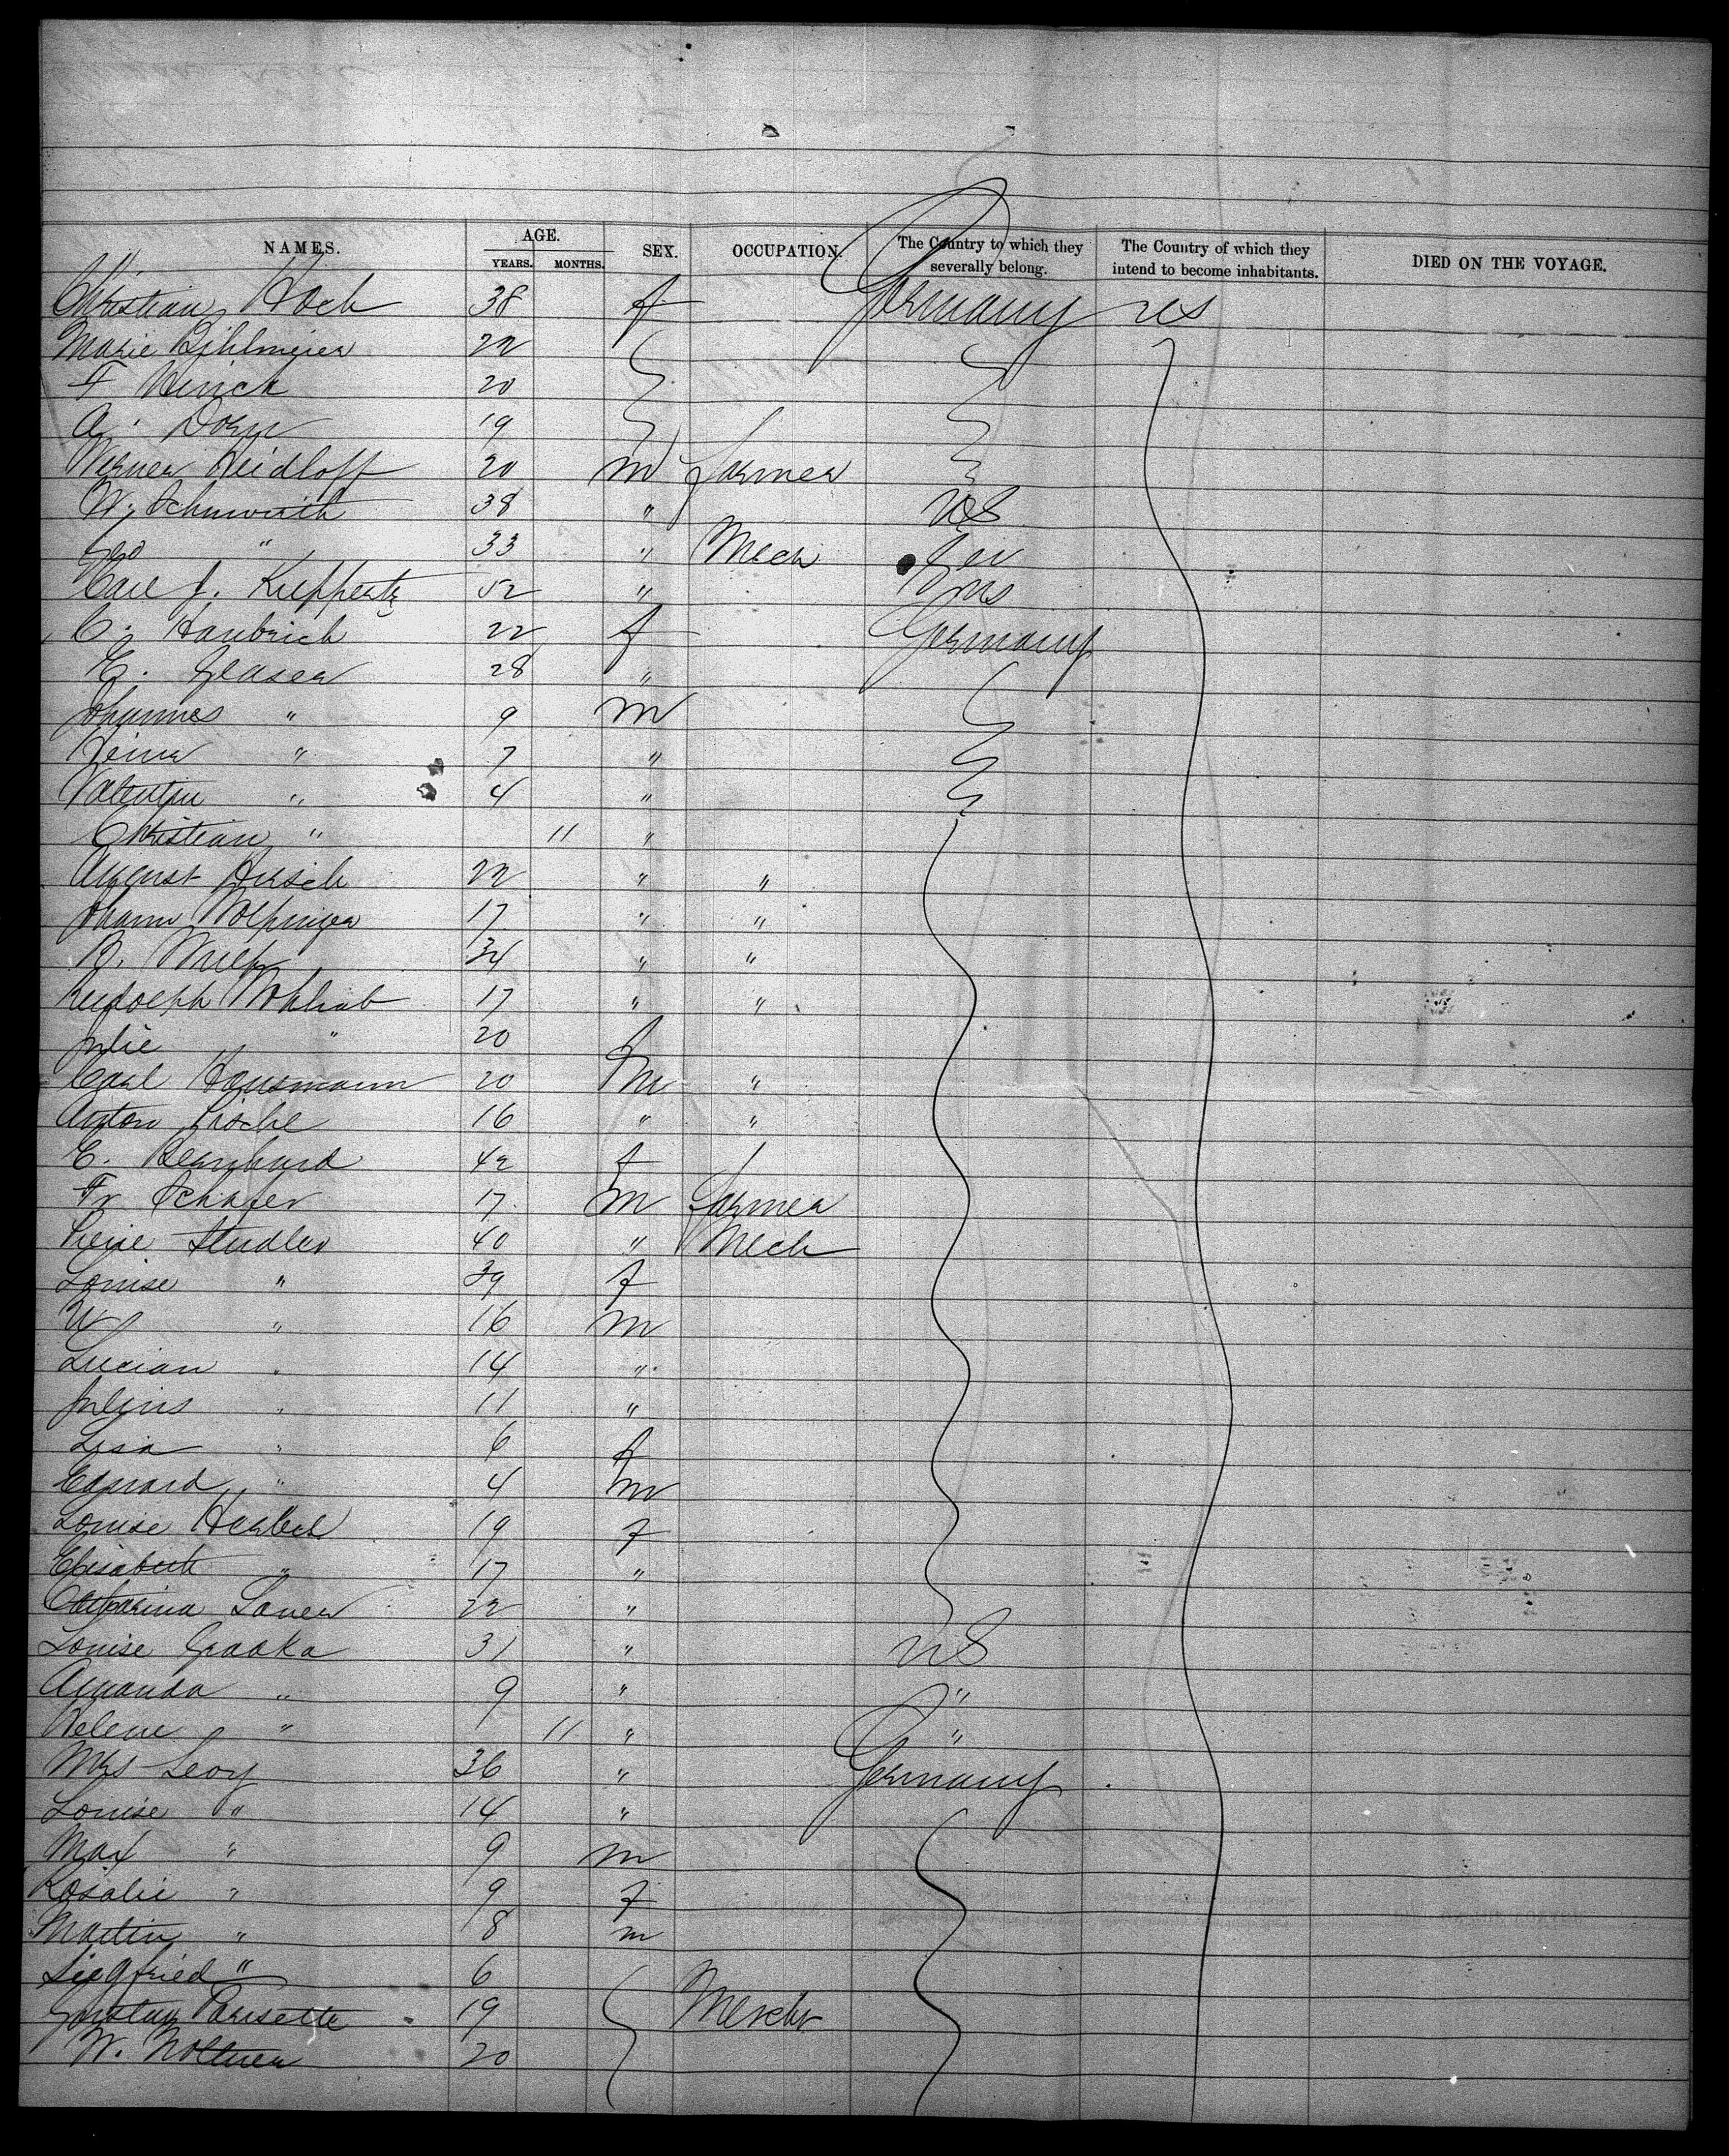 NAMES. AGE. SEX. OCCUPATION. The Country to which they severally belong. The Country of which they intend to become inhabitants. DIED ON THE VOYAGE.
YEARS. MONTHS.
Christian Hoch 38 f Germany US
Marie Bihlmeier 22
F 20
A. Dorn 19
Werner Neidloff 20 m farmer
W. Schuwirth 38 " US
Geo " 33 " Mech Ger
Carl J. Kueppertz 52 " US
C. Haubrich 22 f Germany
E. Glaser 28 "
Johannes " 9 m
Heinr " 7 "
Valentin " 4 "
Christian " 11 "
August Hirsch 22 " "
Johann 17 " "
B. 34 " "
Rudolph Wohlrab 17 " "
Julie " 20 f
Carl Hausmann 20 m "
Anton 16 " "
E. Bernhard 42 f
Fr Schafer 17 m farmer
Pierre Studler 40 " Mech
Louise " 39 f
" 16 m
Lucian " 14 "
Julius " 11 "
Lisa " 6 f
Edward " 4 m
Louise 19 f
Elisabeth " 17 "
Catharina Lauer 22 "
Louise 31 " US
Amanda " 9 " "
Helene " 11 " "
Mrs Levy 36 " Germany
Louise " 14 "
Max " 9 m
Rosalie " 9 f
Martin " 8 m
Siegfried " 6
Gustav Parisette 19 Mercht
W. 20